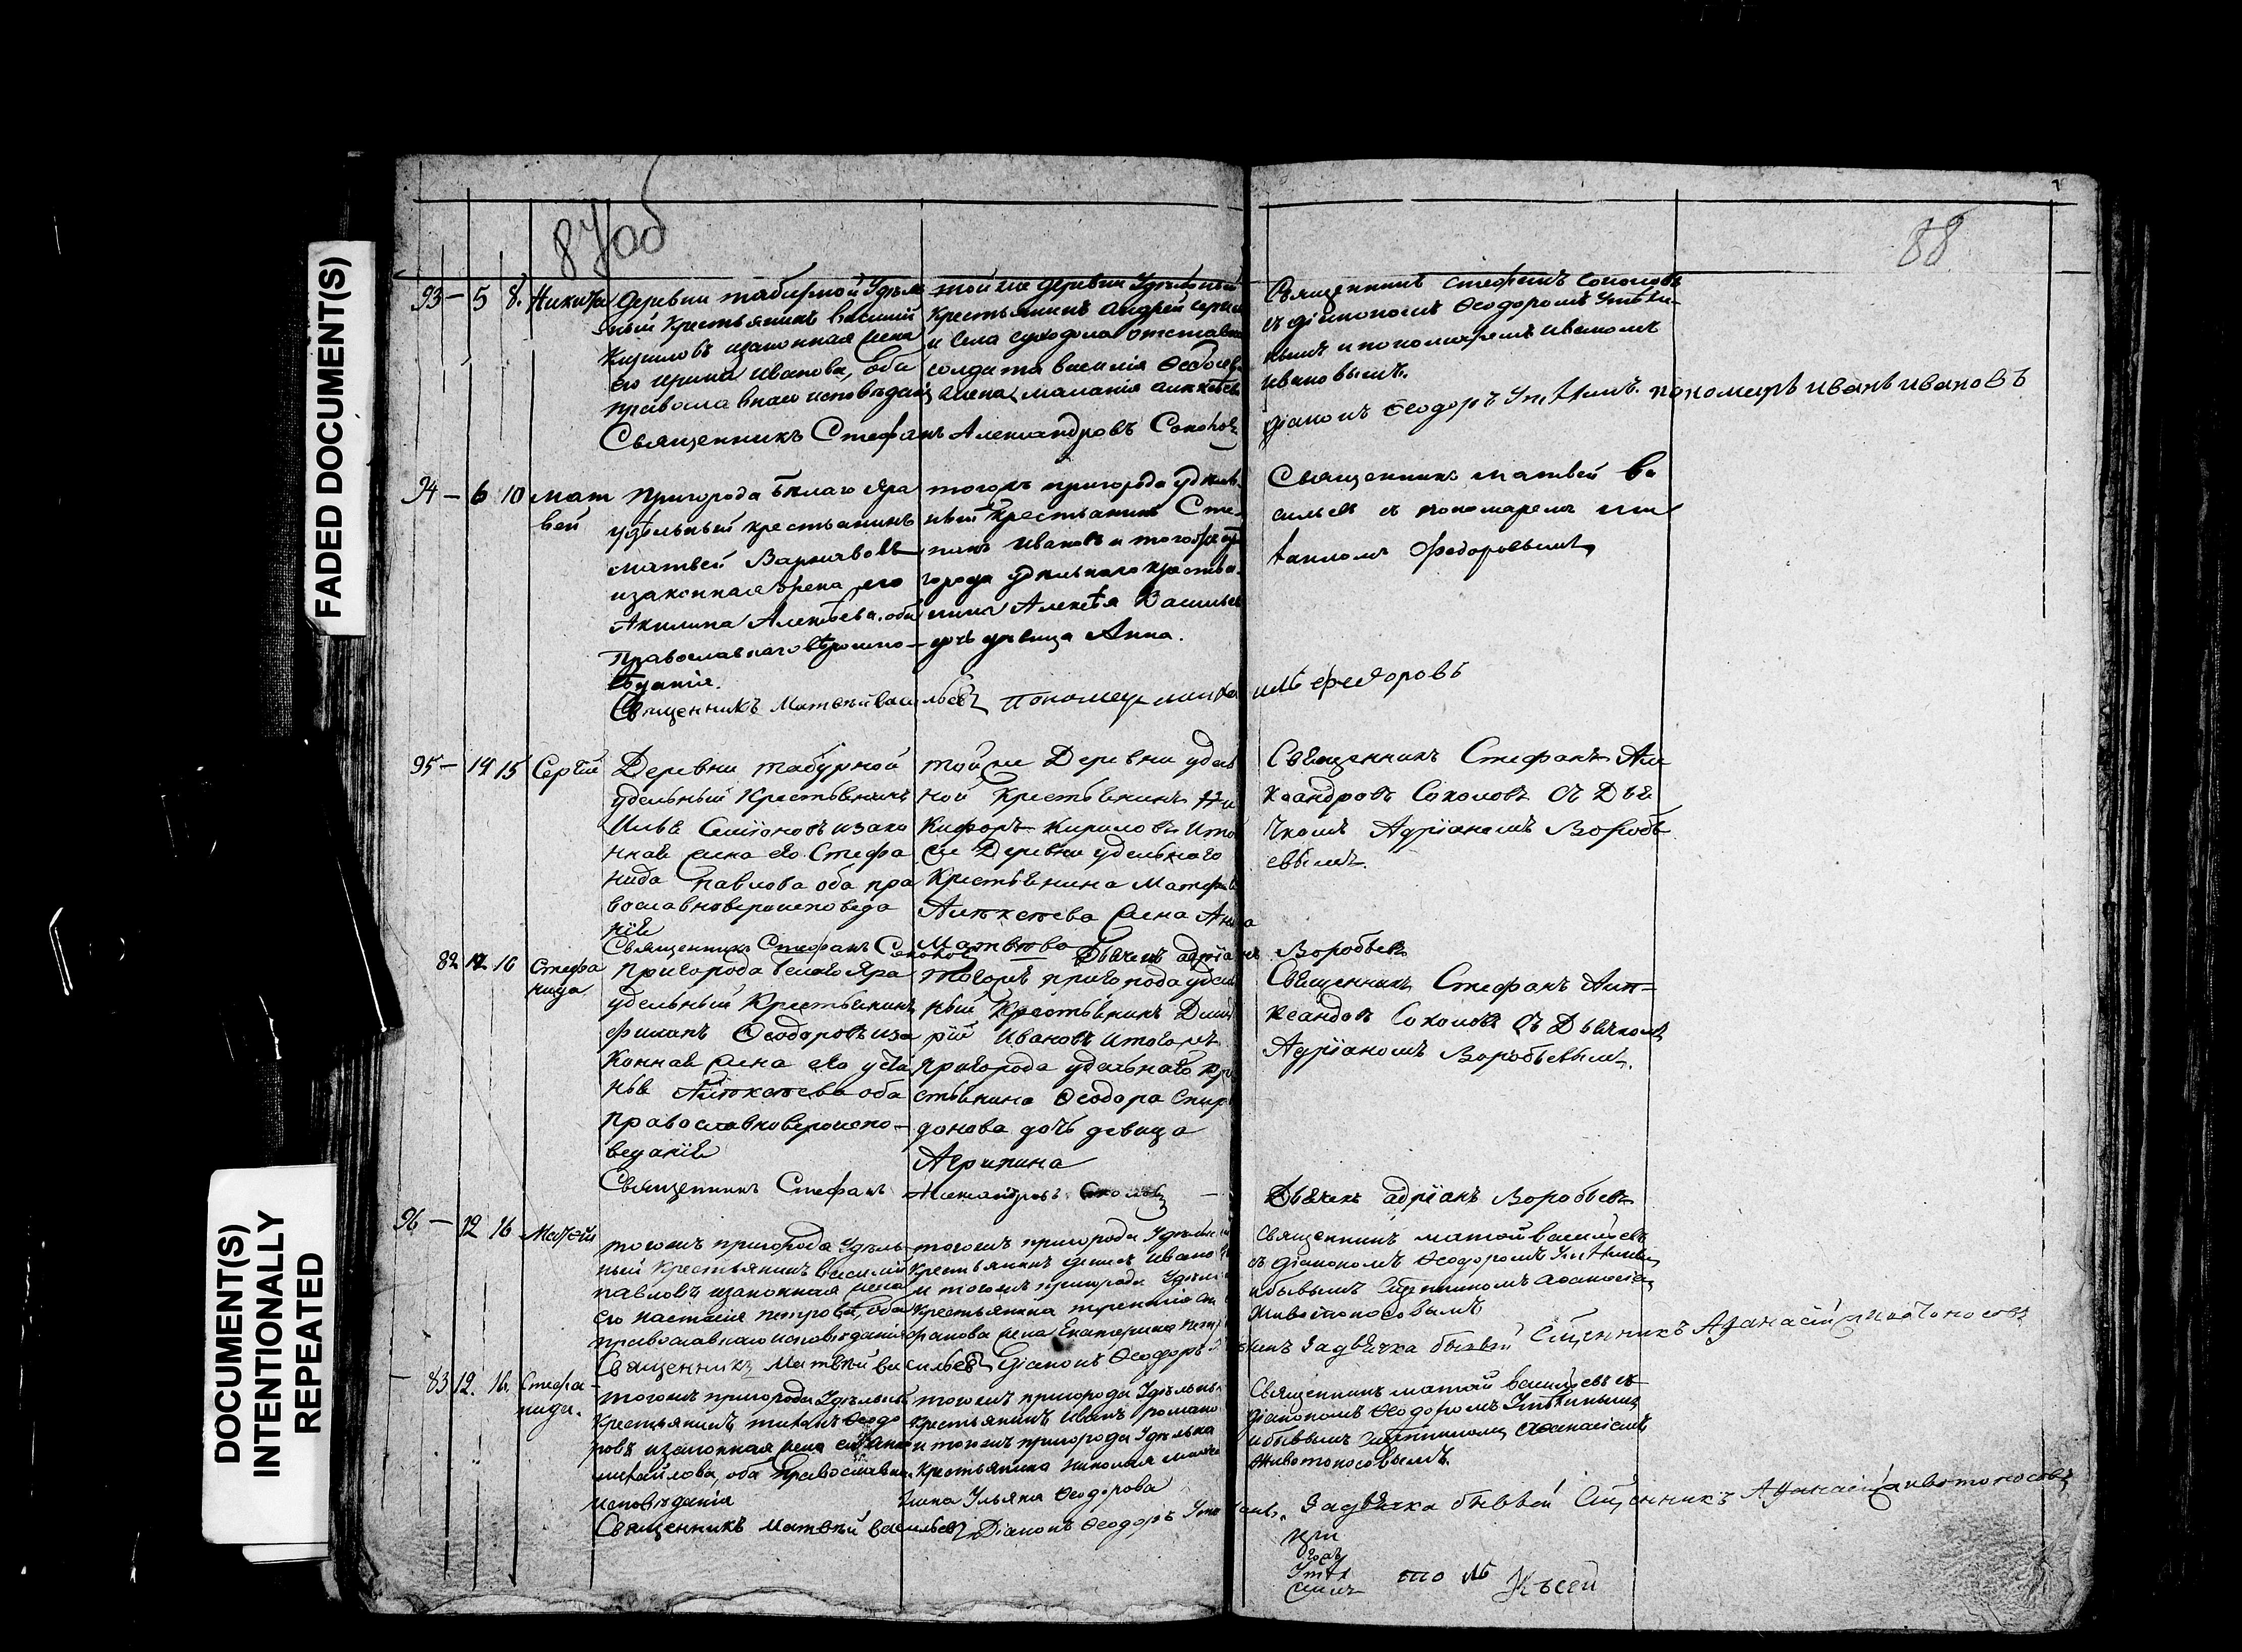 FADED DOCUMENT(S)
DOCUMENT(S)
INTENTIONALLY
REPEATED
87 об
88
93 — 5 8. Никита
Деревни табурной Удѣль
ный Крестьянинъ василий
Кириловъ изаконная жена
его ирина Иванова, оба
православнаго исповѣданія
той же деревни Удѣльный
Крестьянинъ андрей
и села суходола отставнаго
солдата василія Ѳедосѣева
жена маланія
Священникъ Стефанъ Соколовъ
съ діакономъ Ѳеодоромъ Утѣхи-
нымъ и пономаремъ иваномъ
ивановымъ.
Священникъ Стефанъ Александровъ Соколовъ
діаконъ Ѳеодоръ Утѣхинъ. пономарь иванъ ивановъ
94 — 6 10 мат
вей
Пригорода Бѣлаго Яра
удѣльный крестьянинъ
матвей Варнавовъ
изаконная жена его
Акилина Алексѣева, оба
Православнаго вѣроиспо-
вѣданія.
тогожъ пригорода удѣль-
ный Крестьянинъ Сте-
панъ Ивановъ и тогоже при
города удѣльнаго крестья-
нина Алексѣя Васильева
дочь дѣвица Анна.
Священникъ матвей Ва
сильевъ съ пономаремъ ми
хаиломъ Федоровымъ
Священникъ Матвѣй васильевъ пономарь михаилъ федоровъ
95 — 14 15 Сергѣй
Деревни табурной
удельный Крестьенинъ
Илье Семіоновъ изако
нная жена его Стефа
нида Павлова оба пра
вославновероисповеда
ніе
тойже Деревни удель
ной Крестьенинъ Ни
кифоръ Кириловъ ито
же Деревни удельнаго
Крестьенина Матфея
Алексѣева жена Анна
Матвѣева
Священникъ Стефанъ Але
ксандровъ Соколовъ съ Дье
чкомъ Адріаномъ Воробь
евымъ.
Священникъ Стефанъ Соколовъ — Дьечекъ адріанъ Воробьевъ
82 12 16 Стефа
нида
Пригорода белаго Яра
удельный Крестьенинъ
филипъ Ѳеодоровъ иза
конная жена его улья
нье Алексѣева оба
православновероиспо-
веданіе
тогожъ пригорода удель
ный Крестьенинъ Дими
рій Ивановъ итогожъ
пригорода удельнаго кре
стьенина Ѳеодора Спири
донова дочь девица
Агрипина
Священникъ Стефанъ Але-
ксандовъ Соколовъ съ Дьечкомъ
Адріаномъ Воробьевымъ.
Священникъ Стефанъ Александровъ Соколовъ — Дьечекъ адріанъ Воробьевъ
96 — 12 16 Матѳѣй
тогожъ пригорода Удѣль
ный Крестьянинъ василий
павловъ изаконная жена
его настасія петрова, оба
православнаго исповѣданія
тогожъ пригорода Удѣльный
Крестьянинъ денисъ Ивановъ
и тогожъ пригорода Удѣльн
Крестьянина терентія сте
фанова жена Екатерина петр
Священникъ матѳій васильевъ
съ діакономъ Ѳеодоромъ Утѣхинымъ
ибывшимъ Сщенникомъ аѳанасіемъ
Животоносовымъ
Священникъ Матвѣй васильевъ Діаконъ Ѳеодоръ Утѣхинъ Задьячка бывый Сщенникъ Аѳанасій Животоносовъ
— 83 12. 16. Стефа-
нида.
тогожъ пригорода Удѣльный
Крестьянинъ тиханъ Ѳеодо
ровъ изаконная жена
михайлова, оба Православна
исповѣданія
тогожъ пригорода Удѣльны
Крестьянинъ Иванъ романо
и тогожъ пригорода Удѣльна
Крестьянина николая
жена Ульяна Ѳеодорова
Священникъ матѳій васильевъ съ
діакономъ Ѳеодоромъ Утѣхинымъ
ибывшимъ Сщенникомъ Аѳанасіемъ
Животоносовымъ
Священникъ Матвѣй васильевъ Діаконъ Ѳеодоръ Утѣхинъ. Задьячка бывый Сщенникъ Аѳанасій Животоносовъ